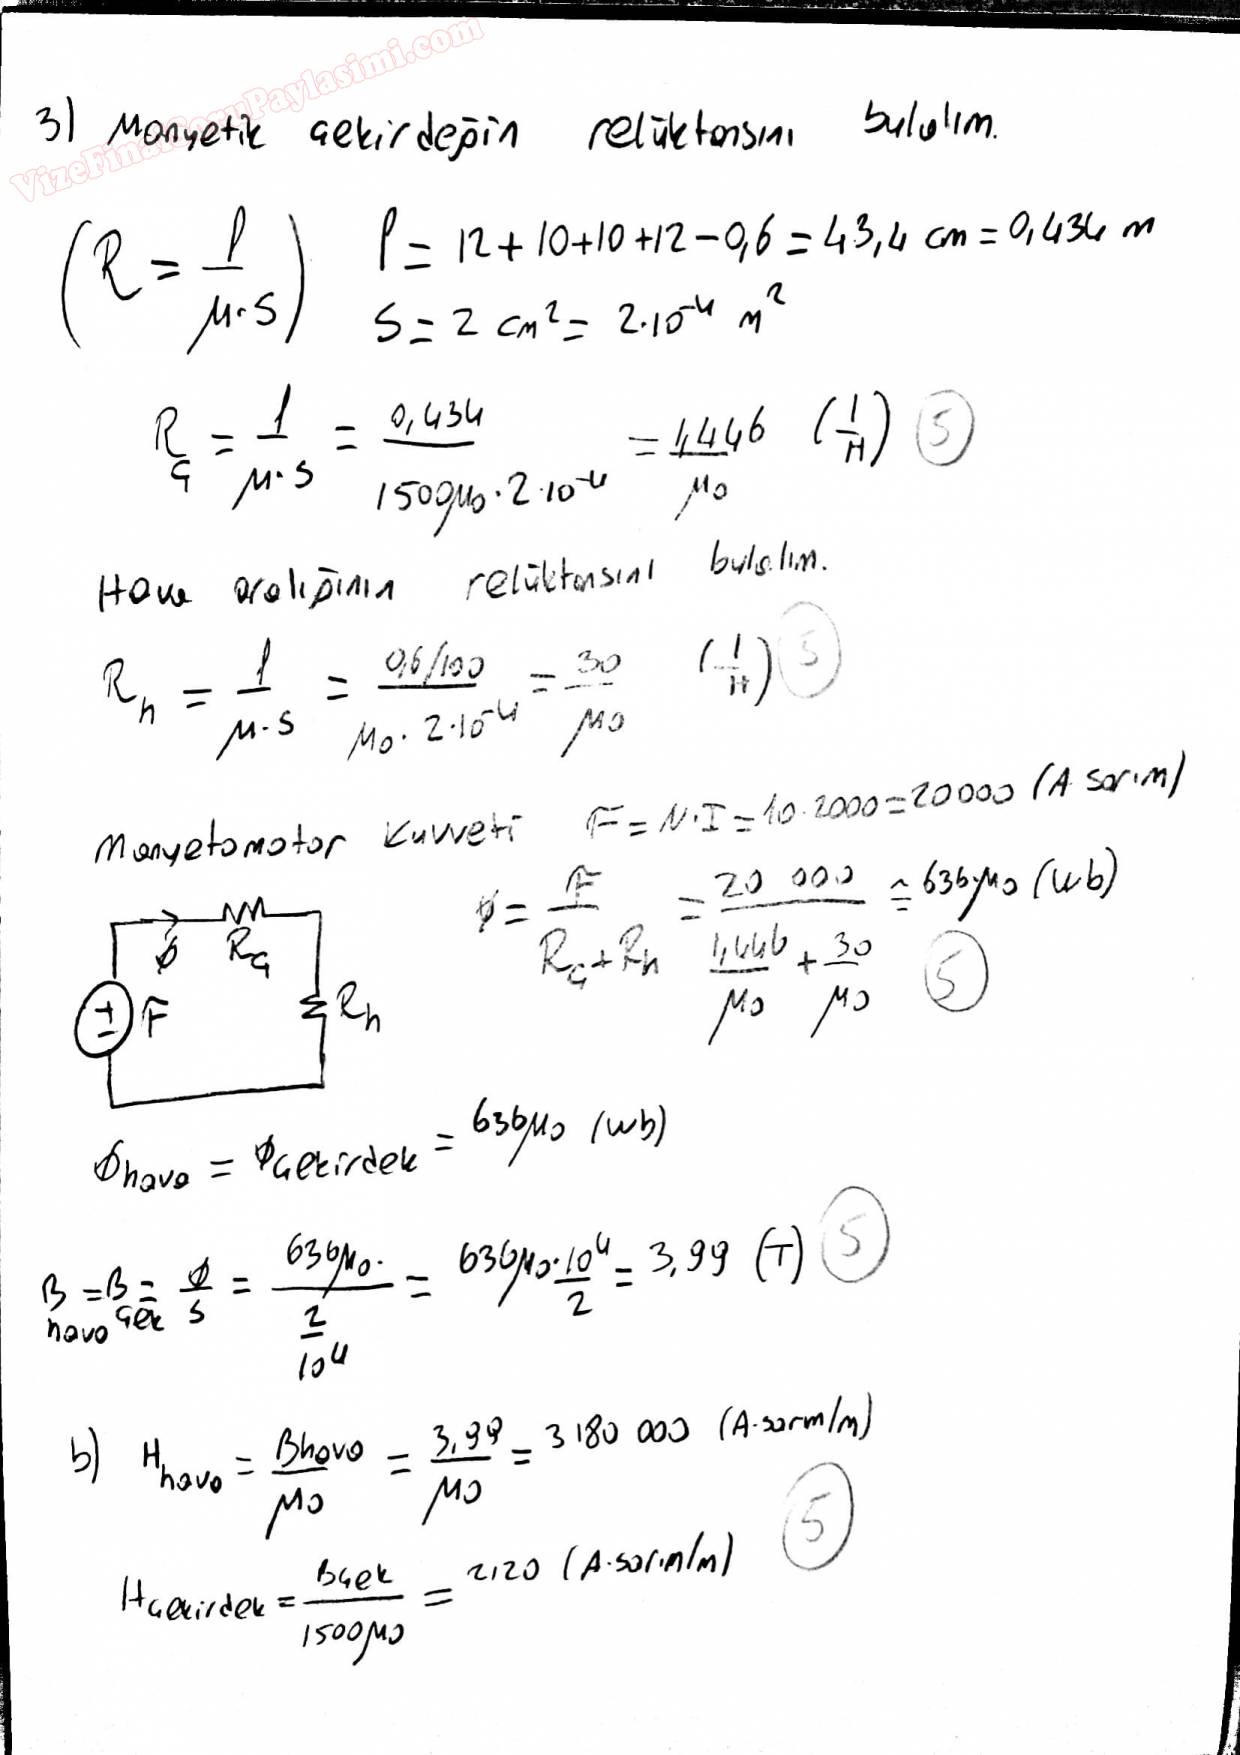 VizeFinalSoruPaylasimi.com
3) Manyetik çekirdeğin relüktansını bulalım.
(R = l / μ·S) l = 12+10+10+12-0,6 = 43,4 cm = 0,434 m
S = 2 cm² = 2·10⁻⁴ m²
R_Ç = l / μ·S = 0,434 / 1500μ₀·2·10⁻⁴ = 1,446 / μ₀ (1/H) 5
Hava aralığının relüktansını bulalım.
R_h = l / μ·S = 0,6/100 / μ₀·2·10⁻⁴ = 30 / μ₀ (1/H) 5
Manyetomotor Kuvveti F = N·I = 10·2000 = 20000 (A sarım)
φ = F / R_Ç + R_h = 20 000 / 1,446/μ₀ + 30/μ₀ ≅ 636μ₀ (wb) 5
φ R_Ç
± F R_h
φhava = φçekirdek = 636μ₀ (wb)
B_hava = B_çek = φ/S = 636μ₀· / 2/10⁴ = 636μ₀·10⁴/2 = 3,99 (T) 5
b) H_hava = Bhava / μ₀ = 3,99 / μ₀ = 3 180 000 (A·sarım/m)
5
Hçekirdek = Bçek / 1500μ₀ = 2120 (A·sarım/m)